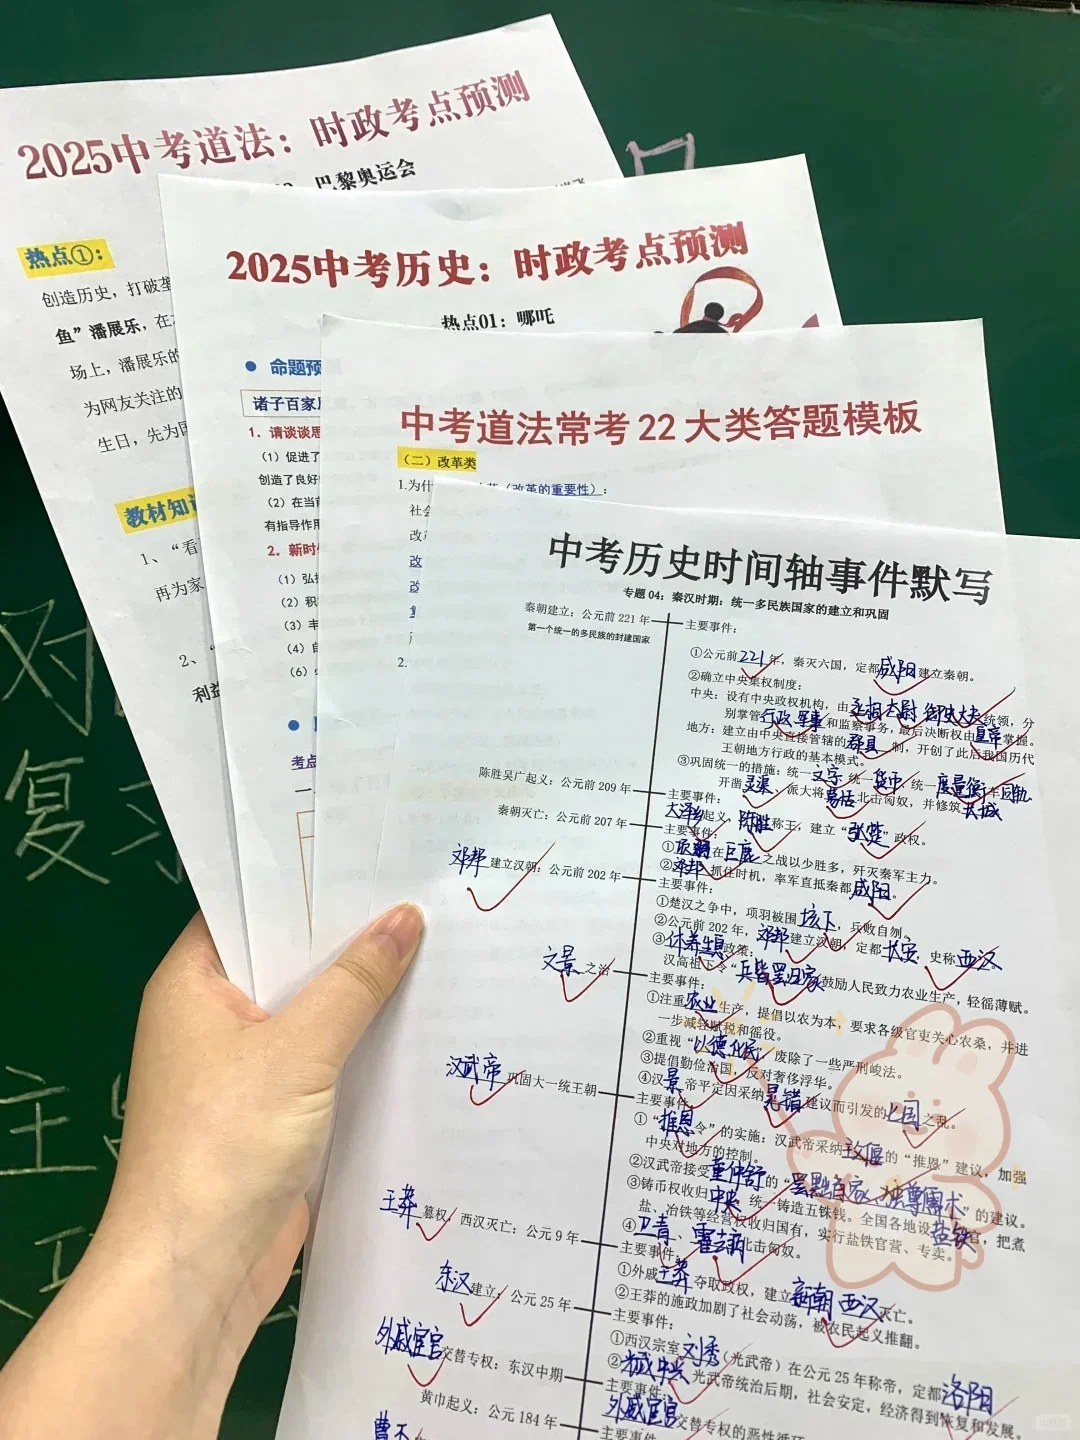 2025中考道法：时政考点预测
巴黎奥运会
热点①：
创造历史，打破
鱼”潘展乐，在
场上，潘展乐的
为网友关注的
生日，先为
教材知识
1、“看
再为家
2、“
利益
2025中考历史：时政考点预测
热点01：哪吒
命题预
诸子百家
1. 请谈谈思
（1）促进了
创造了良好
（2）在当前
有指导作用
2. 新时
（1）弘扬
（2）积
（3）丰
（4）自
（6）
考点
一
中考道法常考22大类答题模板
（二）改革类
1.为什 （改革的重要性）：
社会
改
改
改
2.
中考历史时间轴事件默写
专题 04：秦汉时期：统一多民族国家的建立和巩固
秦朝建立：公元前 221 年
第一个统一的多民族的封建国家
主要事件：
①公元前221年，秦灭六国，定都咸阳建立秦朝。
②确立中央集权制度：
中央：设有中央政权机构，由丞相 太尉 御史大夫统领，分
别掌管行政、军事和监察事务，最后决断权由皇帝掌握。
地方：建立由中央直接管辖的郡县制，开创了此后我国历代
王朝地方行政的基本模式。
③巩固统一的措施：统一文字、统一货币、统一度量衡、车同轨
开凿灵渠、派大将蒙恬北击匈奴，并修筑长城
陈胜吴广起义：公元前 209 年
主要事件：
大泽乡起义，陈胜称王，建立“张楚”政权。
秦朝灭亡：公元前 207 年
主要事件：
①项羽在巨鹿之战以少胜多，歼灭秦军主力。
②刘邦抓住时机，率军直抵秦都咸阳。
刘邦建立汉朝：公元前 202 年
主要事件：
①楚汉之争中，项羽被围垓下，兵败自刎。
②公元前 202 年，刘邦建立汉朝，定都长安，史称西汉。
③休养生息政策：
汉高祖下令“兵皆罢归家”鼓励人民致力农业生产，轻徭薄赋。
文景之治
主要事件：
①注重农业生产，提倡以农为本，要求各级官吏关心农桑，并进
一步减轻赋税和徭役。
②重视“以德化民”，废除了一些严刑峻法。
③提倡勤俭治国，反对奢侈浮华。
④汉景帝平定因采纳晁错建议而引发的七国之乱。
汉武帝巩固大一统王朝
主要事件：
①“推恩令”的实施：汉武帝采纳主父偃的“推恩”建议，加强
中央对地方的控制。
②汉武帝接受董仲舒的“罢黜百家，独尊儒术”的建议。
③铸币权收归中央，统一铸造五铢钱。全国各地设盐铁官，把煮
盐、冶铁等经营权收归国有，实行盐铁官营、专卖。
④卫青、霍去病北击匈奴。
王莽篡权，西汉灭亡：公元 9 年
主要事件：
①外戚王莽夺取政权，建立新朝 西汉灭亡。
②王莽的施政加剧了社会动荡，被农民起义推翻。
东汉建立：公元 25 年
主要事件：
①西汉宗室刘秀（光武帝）在公元 25 年称帝，定都洛阳
②光武中兴：光武帝统治后期，社会安定，经济得到恢复和发展。
外戚宦官交替专权：东汉中期
主要事件：
外戚宦官交替专权的恶性循环
黄巾起义：公元 184 年
主要事件：
曹丕